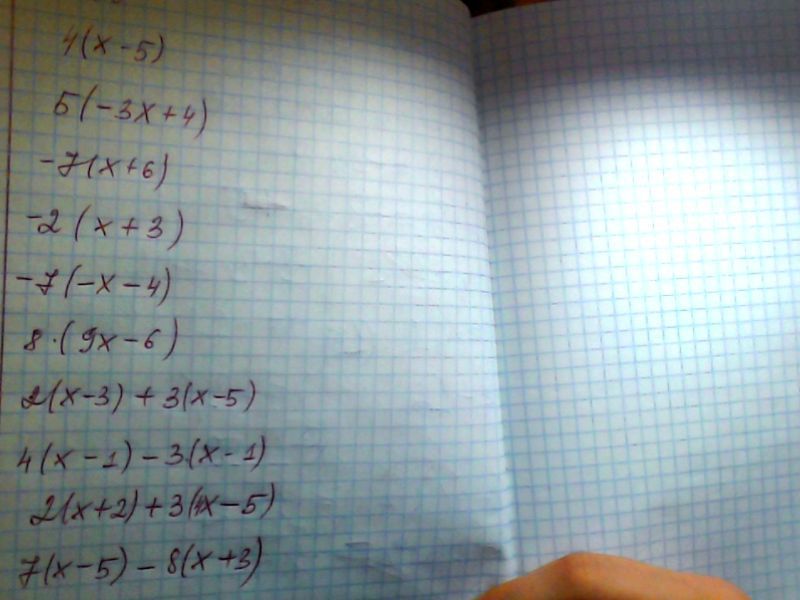 4(x-5)
5(-3x+4)
-7(x+6)
-2(x+3)
-7(-x-4)
8·(9x-6)
2(x-3)+3(x-5)
4(x-1)-3(x-1)
2(x+2)+3(4x-5)
7(x-5)-8(x+3)